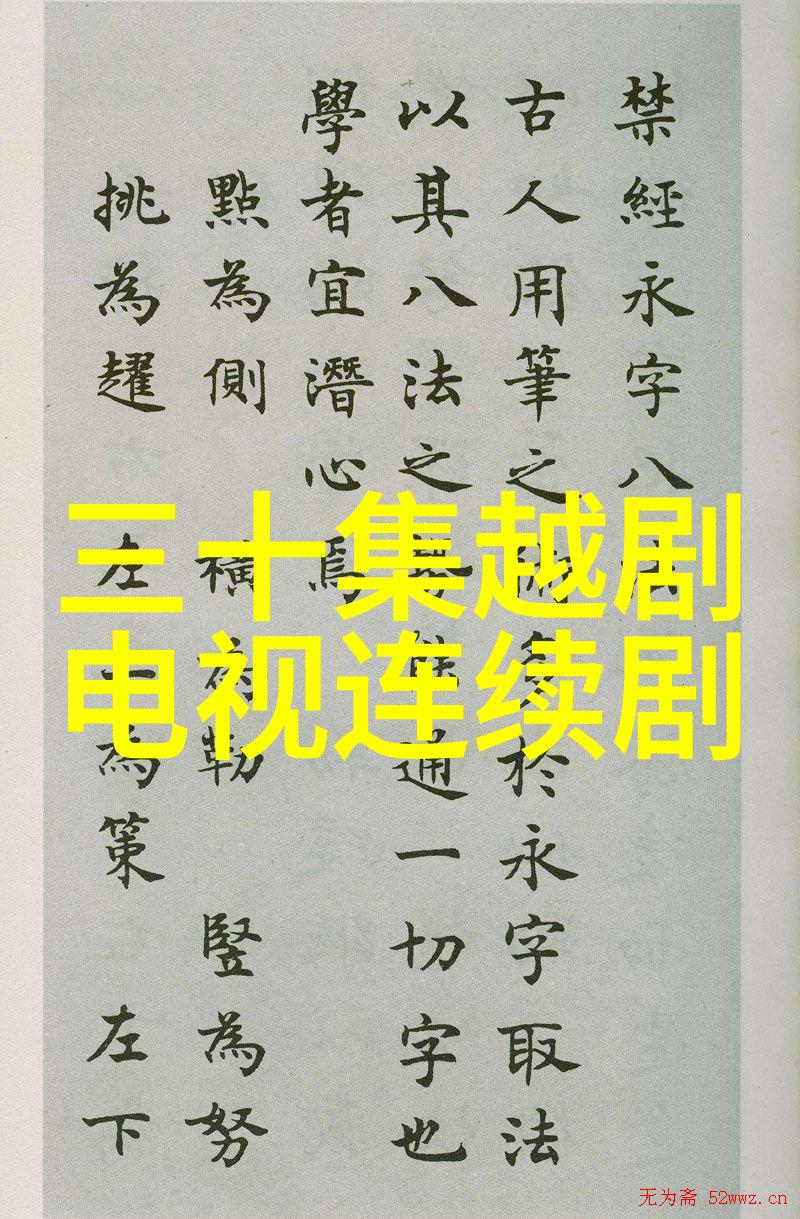 禁經永字八法
古人用筆之術多於永字取法
以其八法之勢能通一切字也
學者宜潛心焉
點為側 橫為勒 豎為努
挑為趯 左上為策 左下
三十集越剧
电视连续剧
无为斋 52wwz.cn